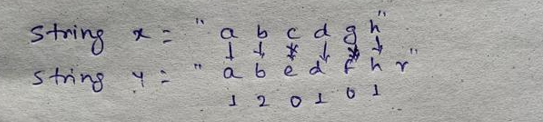 string x = " a b c d g h"
string y = " a b e d f h r "
1 2 0 1 0 1